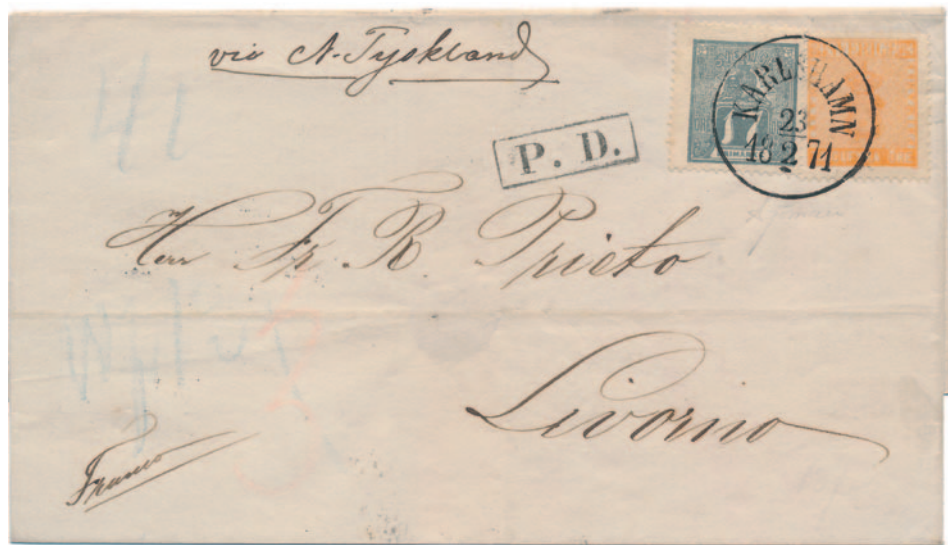 via N. Tyskland
17
KARLSHAMN
23
18 2 71
P. D.
41
Herr Fr. R. Prieto
Livorno
Franco